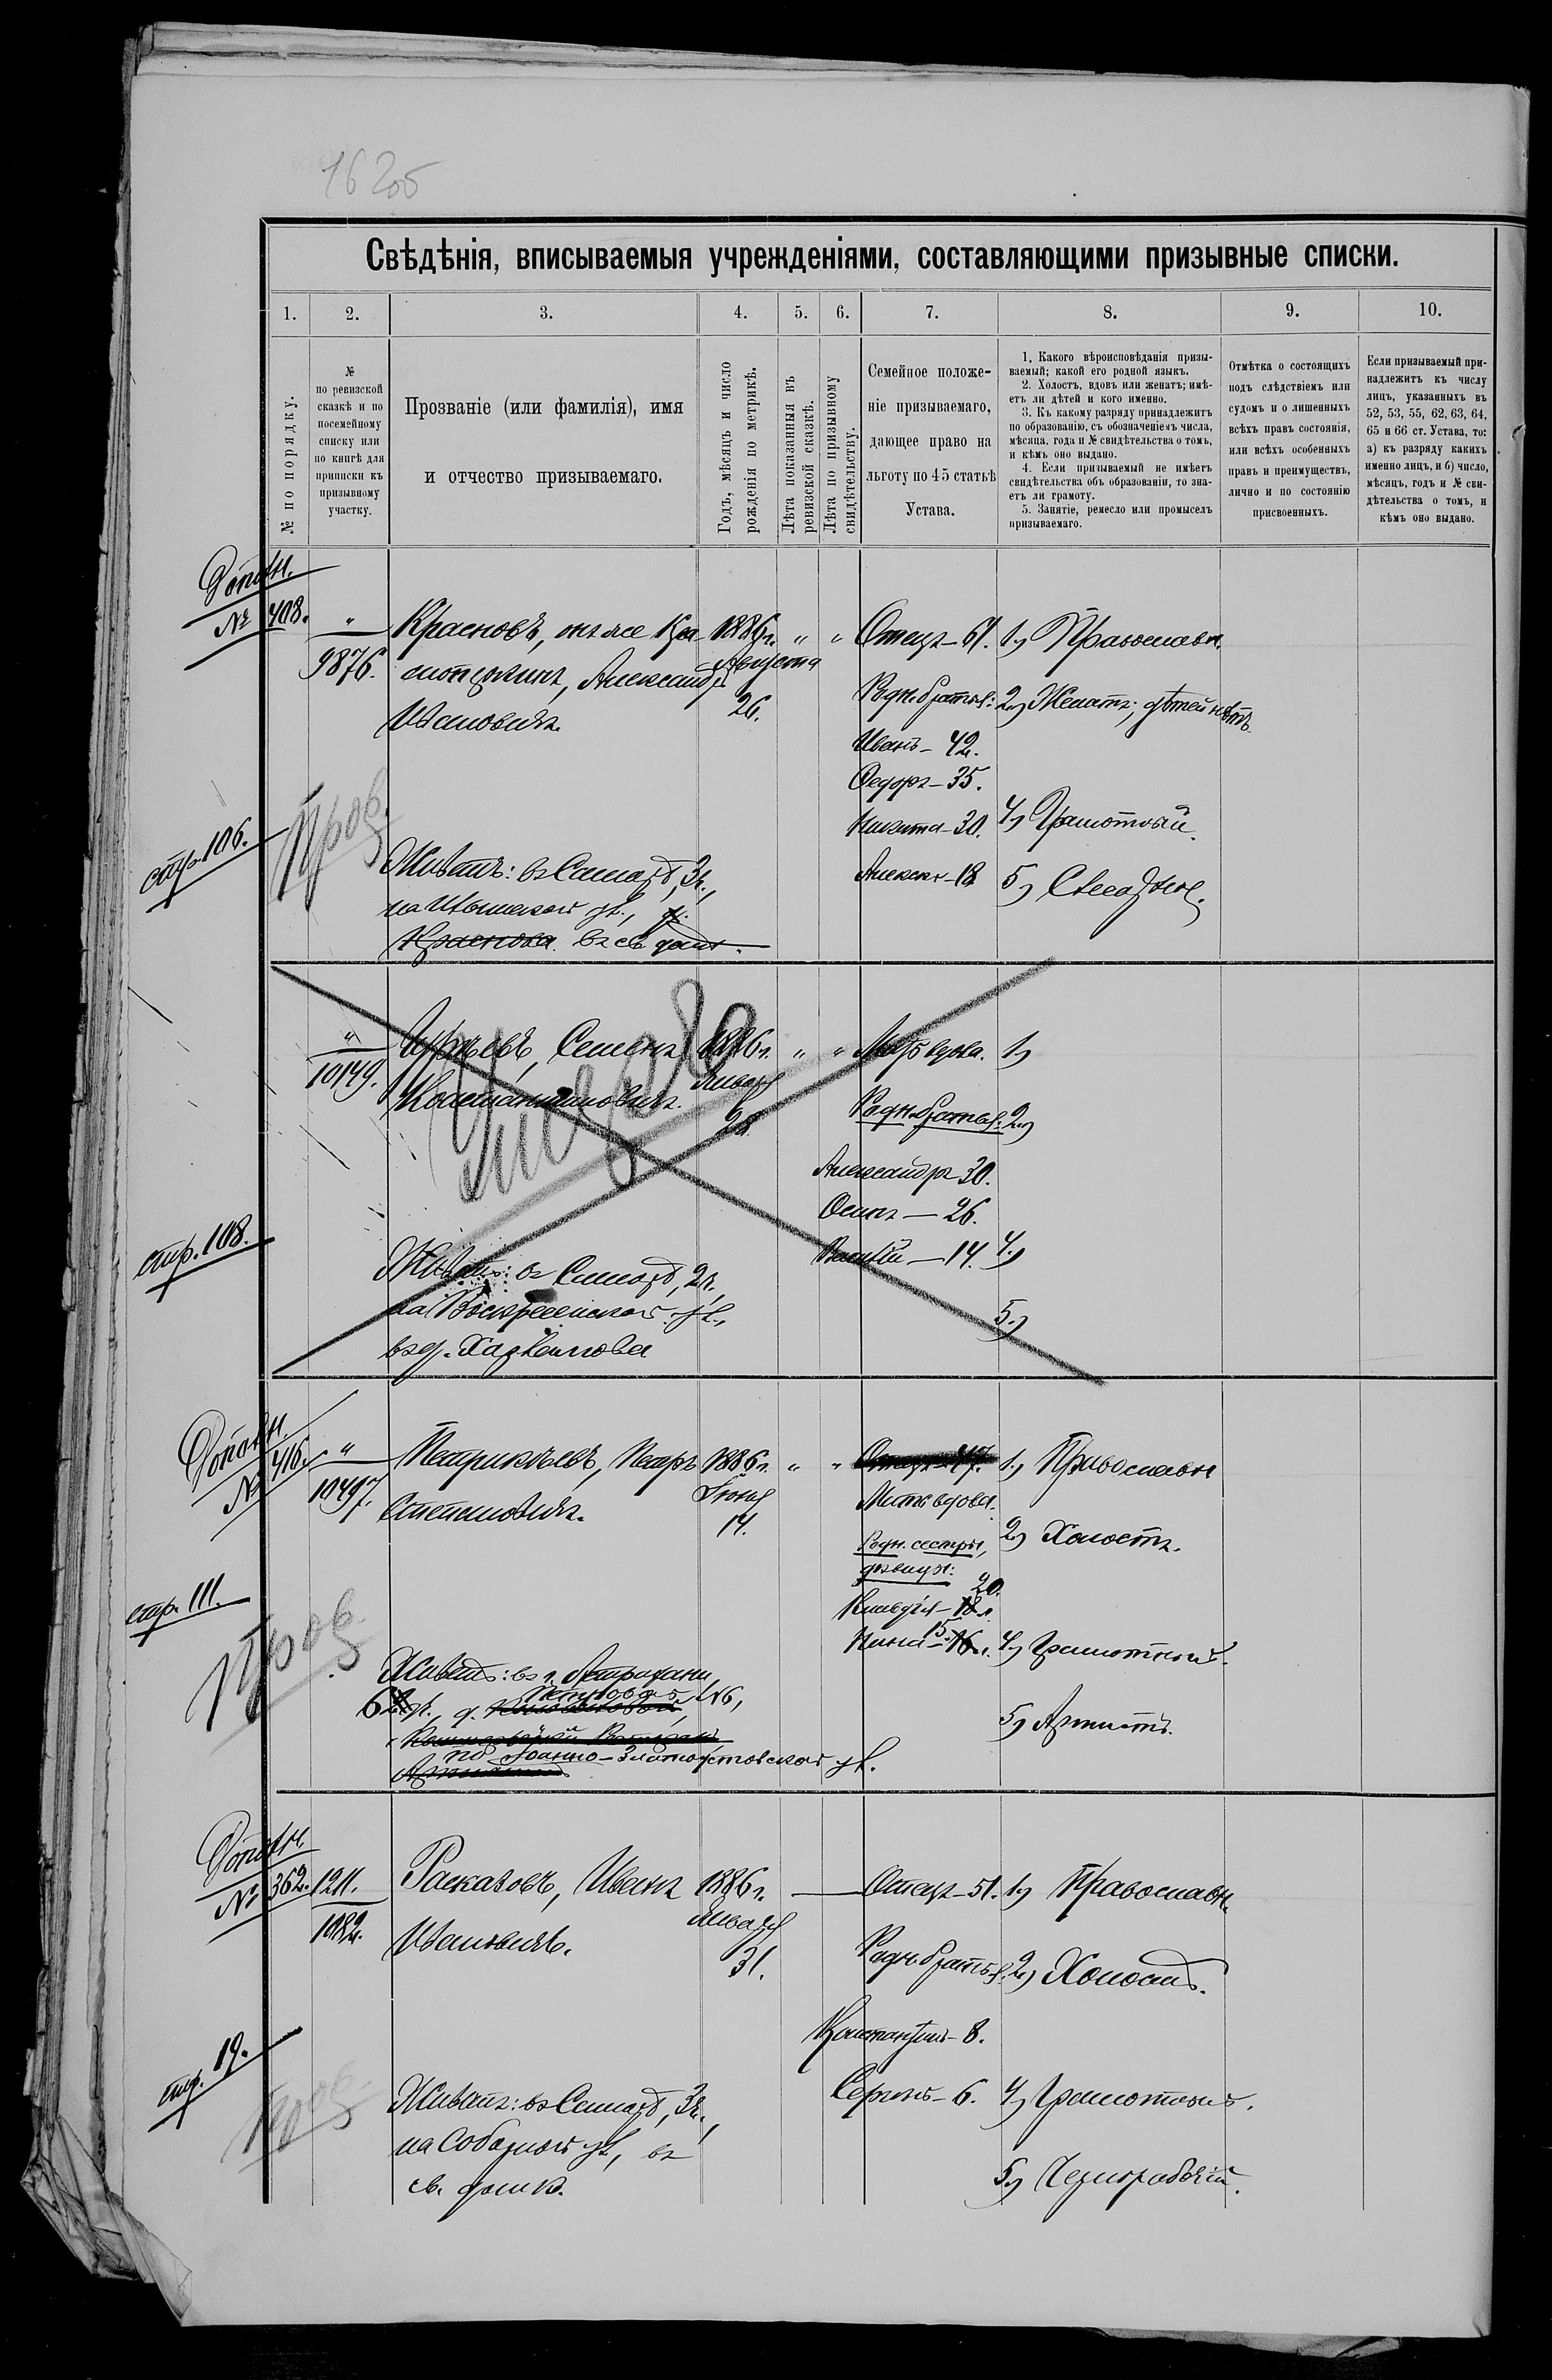 16 об
Свѣдѣнія, вписываемыя учрежденіями, составляющими призывные списки.
1. 2. 3. 4. 5. 6. 7. 8. 9. 10.
№ по порядку.
№
по ревизской
сказкѣ и по
посемейному
списку или
по книгѣ для
приписки къ
призывному
участку.
Прозваніе (или фамилія), имя
и отчество призываемаго.
Годъ, мѣсяцъ и число
рожденія по метрикѣ.
Лѣта показанныя въ
ревизской сказкѣ.
Лѣта по призывному
свидѣтельству.
Семейное положе-
ніе призываемаго,
дающее право на
льготу по 45 статьѣ
Устава.
1. Какого вѣроисповѣданія призы-
ваемый; какой его родной языкъ.
2. Холостъ, вдовъ или женатъ; имѣ-
етъ ли дѣтей и кого именно.
3. Къ какому разряду принадлежитъ
по образованію, съ обозначеніемъ числа,
мѣсяца, года и № свидѣтельства о томъ,
и кѣмъ оно выдано.
4. Если призываемый не имѣетъ
свидѣтельства объ образованіи, то зна-
етъ ли грамоту.
5. Занятіе, ремесло или промыселъ
призываемаго.
Отмѣтка о состоящихъ
подъ слѣдствіемъ или
судомъ и о лишенныхъ
всѣхъ правъ состоянія,
или всѣхъ особенныхъ
правъ и преимуществъ,
лично и по состоянію
присвоенныхъ.
Если призываемый при-
надлежитъ къ числу
лицъ, указанныхъ въ
52, 53, 55, 62, 63, 64,
65 и 66 ст. Устава, то:
а) къ разряду какихъ
именно лицъ, и б) число,
мѣсяцъ, годъ и № сви-
дѣтельства о томъ, и
кѣмъ оно выдано.
Дополн.
№ 408.
"
9876.
Красновъ, онъ же Кра-
Александръ
Ивановичъ.
1886 г.
Августа
26.
" "
Отецъ – 61.
Родн. братья:
Иванъ – 42.
Федоръ – 35.
Никита – 30.
Алексѣй – 18
1) Православн.
2) Женатъ; дѣтей нѣтъ.
4) Грамотный.
5) Слесарь.
стр. 106.
Пров.
Живетъ: въ Самарѣ, 3 ч.,
на Ильинской ул., д.
Краснова въ св. домѣ.
"
10149.
Юрьевъ, Семенъ
Константиновичъ.
1886 г.
Января
28
" "
Мать вдова.
Родн. братья:
Александръ 30.
Осипъ — 26.
Василій — 14.
1)
2)
4)
5)
стр. 108.
Живетъ: въ Самарѣ, 2 ч.,
на Воскресенской ул.,
въ д. Харитонова
Дополн.
№ 416.
"
10497.
Патрикѣевъ, Петръ
Степановичъ.
1886 г.
Іюня
14.
" "
Отецъ – 47.
Мать вдова.
Родн. сестры,
дѣвицы:
Клавдія – 18 л. 20.
Нина – 16 л. 15
1) Православн
2) Холостъ.
4) Грамотный.
5) Артистъ.
стр. 111.
Пров.
Живетъ: въ г. Астрахани
6 уч., д. Петровой, № 6,
по Іоанно-Златоустовской ул.
Дополн.
№ 362.
1211.
1082.
Расказовъ, Иванъ
Ивановичъ.
1886 г.
Января
31.
Отецъ – 51.
Родн. братья:
Константинъ – 8.
Сергѣй – 6.
1) Православн.
2) Холостъ.
4) Грамотный.
5) Чернорабочій.
стр. 19.
Пров.
Живетъ: въ Самарѣ, 3 ч.,
на Соборной ул., въ
св. домѣ.